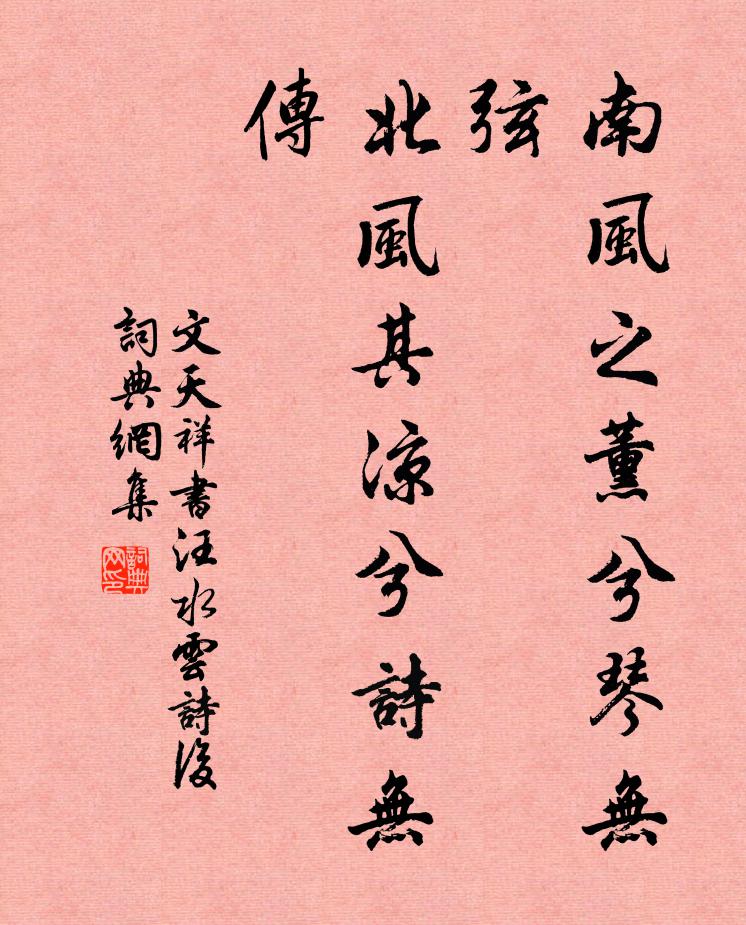 南風之薰兮琴無
弦
北風其凉兮詩無
傳
文天祥書汪水雲詩後
詞典網集
詞典
网印